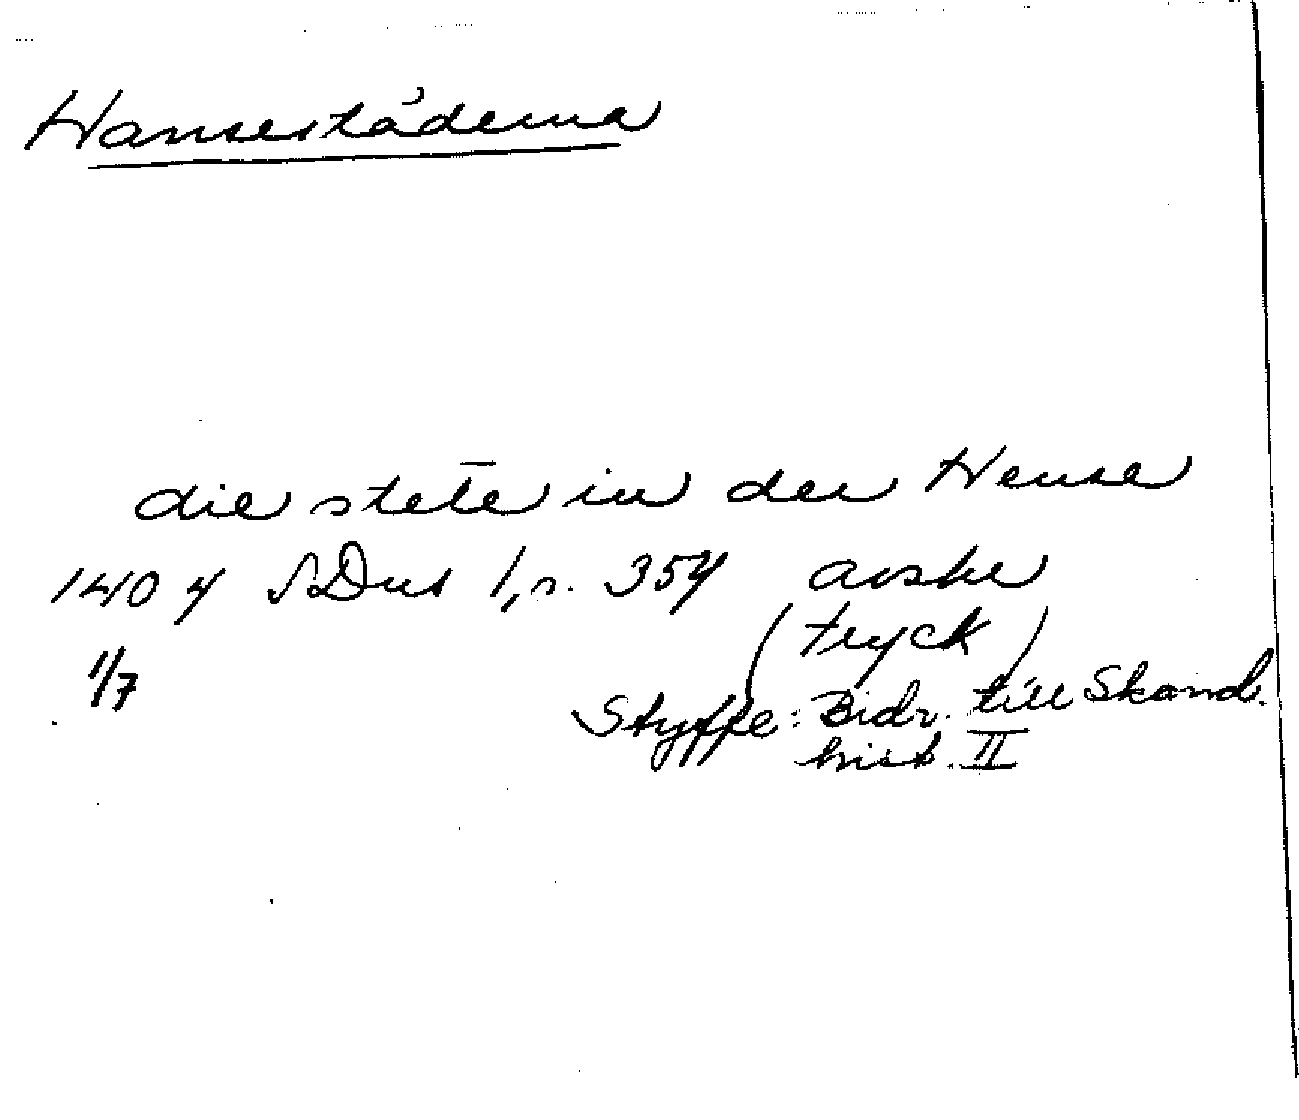 Hansestäderna
die stetē in der Hense
1404 SDns 1, s. 354 avskr
1/7 (tryck)
Styffe: Bidr. till Skand.
hist. II